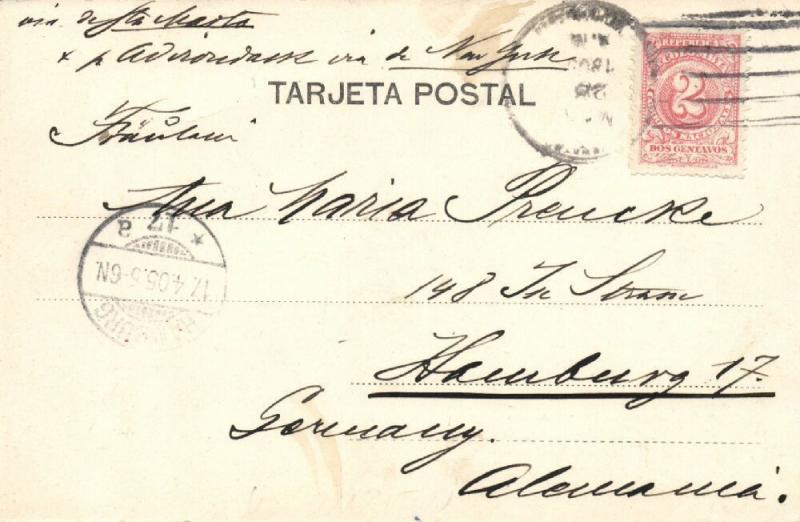 via de Sta Marta
x p Adirondack via de New York
TARJETA POSTAL
REPUBLICA
COLOMBIA
2
NACIONAL
DOS CENTAVOS
Fräulein
Ana Maria Preucke
148 Strasse
Hamburg 17.
Germany.
Alemania.
HAMBURG
17.4.05.5-6N.
* 17 a